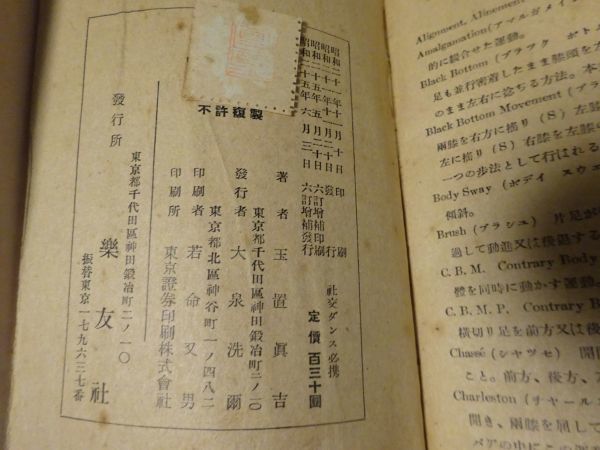 社交ダンス必携
定價 百三十圓
昭和二十一年十一月十日 印刷
昭和二十一年十一月二十日 發行
昭和二十五年五月二十日 六訂增補印刷
昭和二十五年六月三日 六訂增補發行
不許複製
著者 玉置眞吉
東京都千代田區神田鍛冶町二ノ一〇
發行者 大泉洗爾
東京都北區神谷町一ノ四八二
印刷者 若命又男
印刷所 東京證券印刷株式會社
發行所
東京都千代田區神田鍛冶町二ノ一〇
樂友社
振替東京一七九六三七番
Alignment, Alinement
Amalgamation (アマルガメイ
的に綜合せた運動。
Black Bottom (ブラック ボトム
足も並行密着したまま膝頭を左
のまま左右に捻ぢる方法。本
Black Bottom Movement (ブラ
兩膝を右方に搖り (S) 右膝を左膝の
左に搖り (S) 左膝を右膝
一つの步法として行はれる
Body Sway (ボデイ スウエ
傾斜。
Brush (ブラシユ) 片足が
過して動進又は後退する
C. B. M. Contrary Body
體を同時に動かす運動。
C. B. M. P. Contrary Body
橫切り足を前方又は後
Chassé (シヤツセ) 開
こと。前方、後方、
Charleston (チヤールス
開き、兩膝を屈して